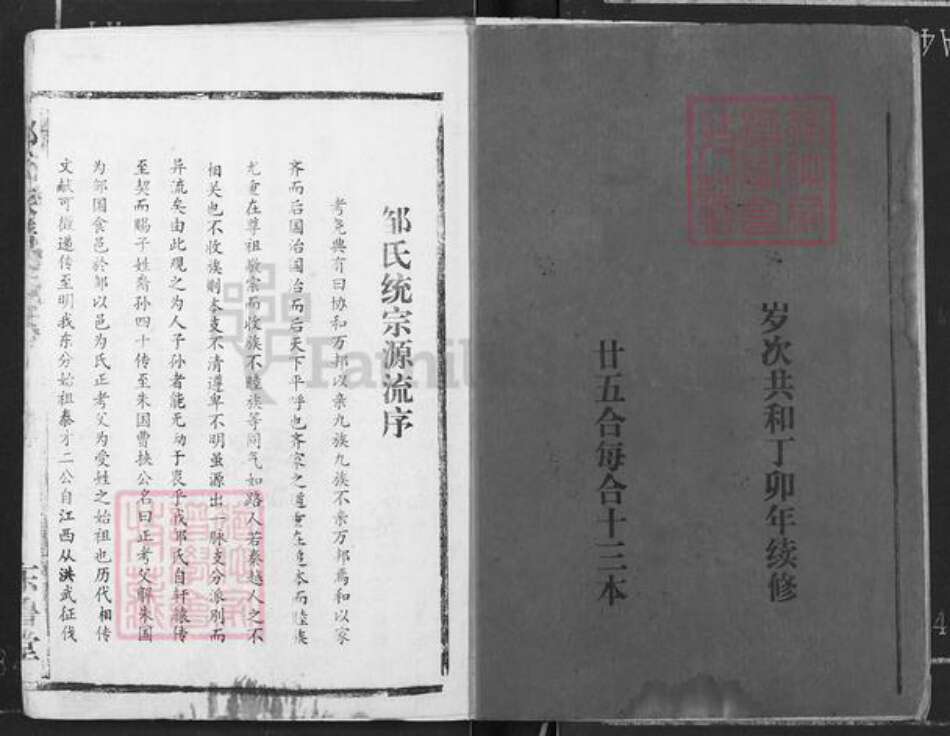 岁次共和丁卯年续修
廿五合每合十三本
邹氏统宗源流序
考尧典有曰协和万邦以亲九族九族不亲万邦焉和以家
齐而后国治国治而后天下平呼也齐家之道重在追本而睦族
尤重在尊祖敬宗而收族不睦族等同气如路人若秦越人之不
相关也不收族则本支不清遵卑不明虽源出一脉支分派别而
异流矣由此观之为人子孙者能无动于衷乎我邹氏自轩辕传
至契而赐子姓裔孙四十传至朱国曹挟公名曰正考父解朱国
为邹国食邑於邹以邑为氏正考父为受姓之始祖也历代相传
文献可徵递传至明我东分始祖泰才二公自江西从洪武征伐